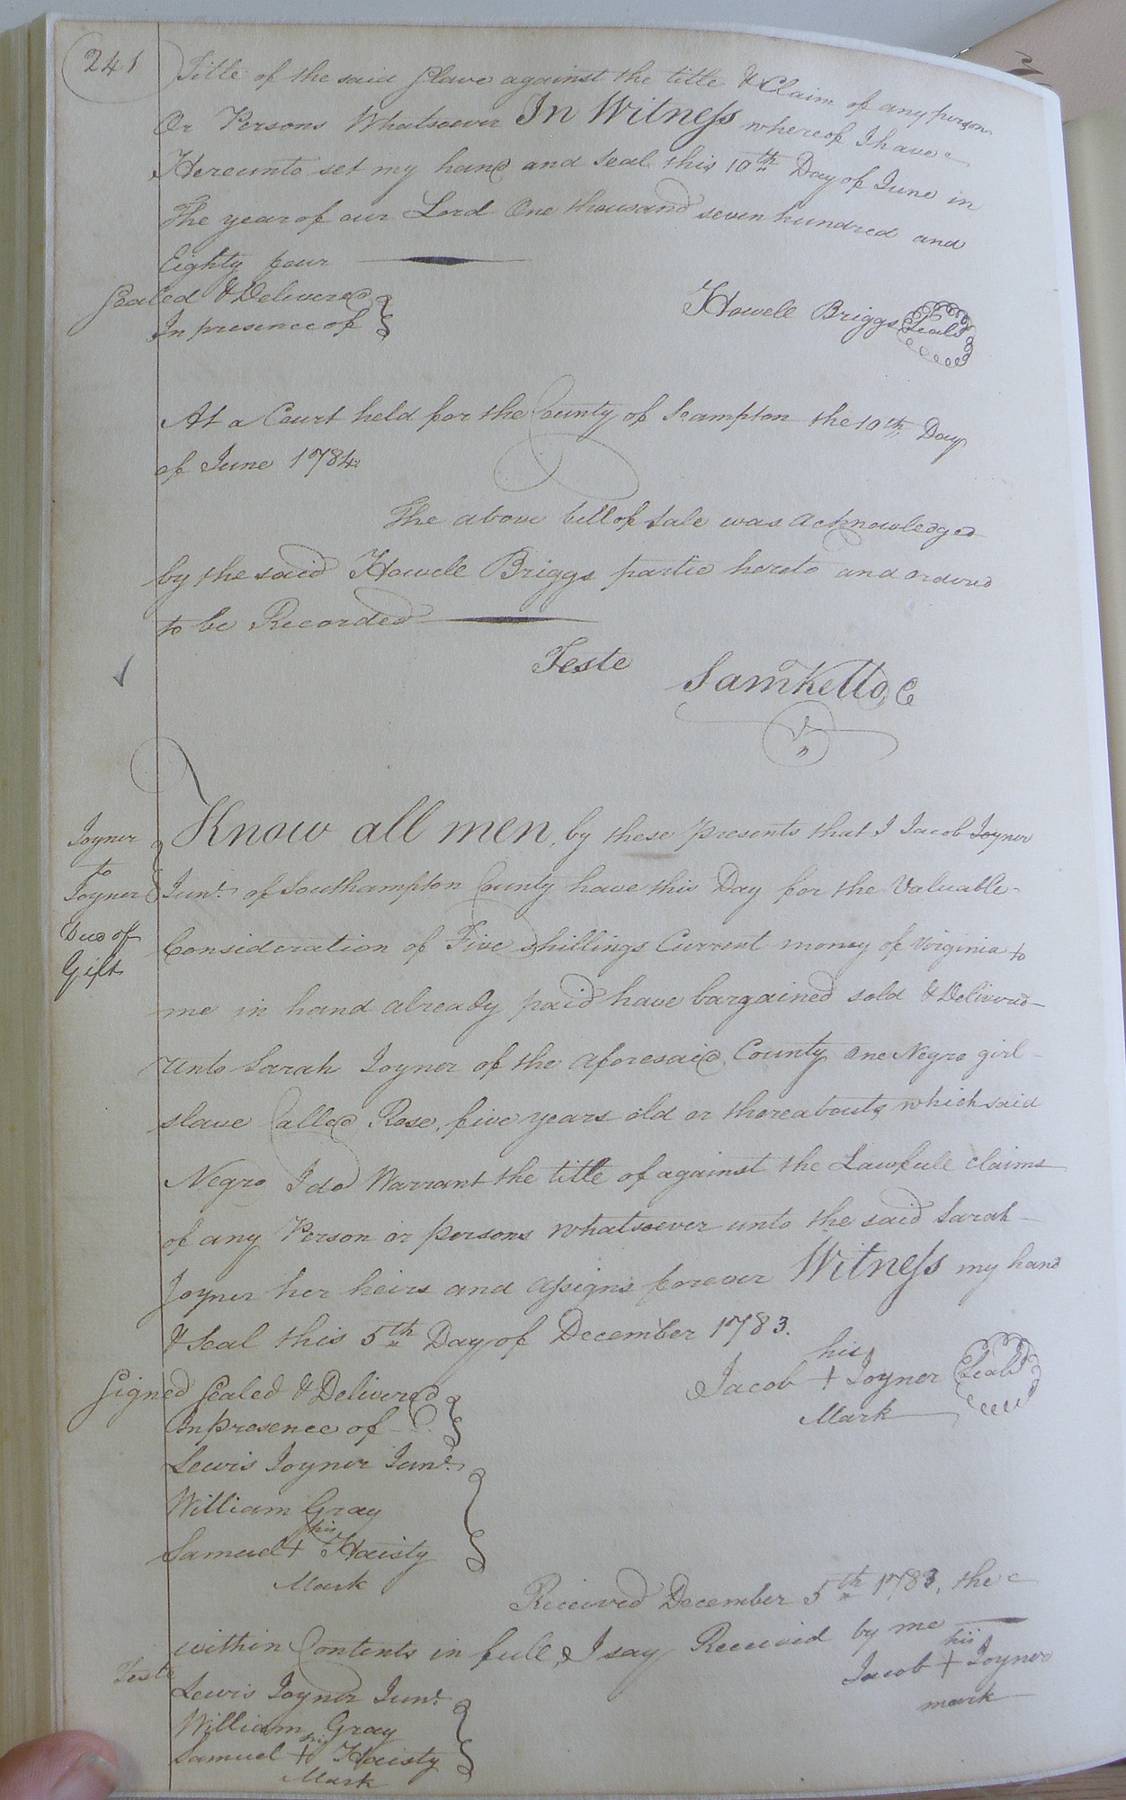 241
Title of the said Slave against the title & Claim of any person
Or Persons Whatsoever In Witness whereof I have
Hereunto set my hand and seal this 10th Day of June in
The year of our Lord One thousand seven hundred and
Eighty four
Sealed & Delivered
In presence of
Howell Briggs Seal
At a Court held for the County of Southampton the 10th Day
of June 1784
The above bill of sale was acknowledged
by the said Howell Briggs partie hereto and ordered
to be Recorded
Teste
Saml Kello C
Joyner
to
Joyner
Deed of
Gift
Know all men by these presents that I Jacob Joyner
Junr. of Southampton County have this Day for the Valuable
Consideration of Five Shillings Current money of Virginia to
me in hand already paid have bargained sold & Delivered
Unto Sarah Joyner of the aforesaid County One Negro girl
slave Called Rose, five years old or thereabouts which said
Negro I do Warrant the title of against the Lawfull claims
of any Person or persons whatsoever unto the said Sarah
Joyner her heirs and assigns forever Witness my hand
& Seal this 5th Day of December 1783.
his
Jacob + Joyner Seal
Mark
Signed Sealed & Delivered
In presence of
Lewis Joyner Junr.
William Gray
his
Samuel + Haisty
Mark
Received December 5th 1783, the
within Contents in full, I say Received by me
his
Jacob + Joyner
mark
Teste
Lewis Joyner Junr.
William Gray
his
Samuel + Haisty
Mark